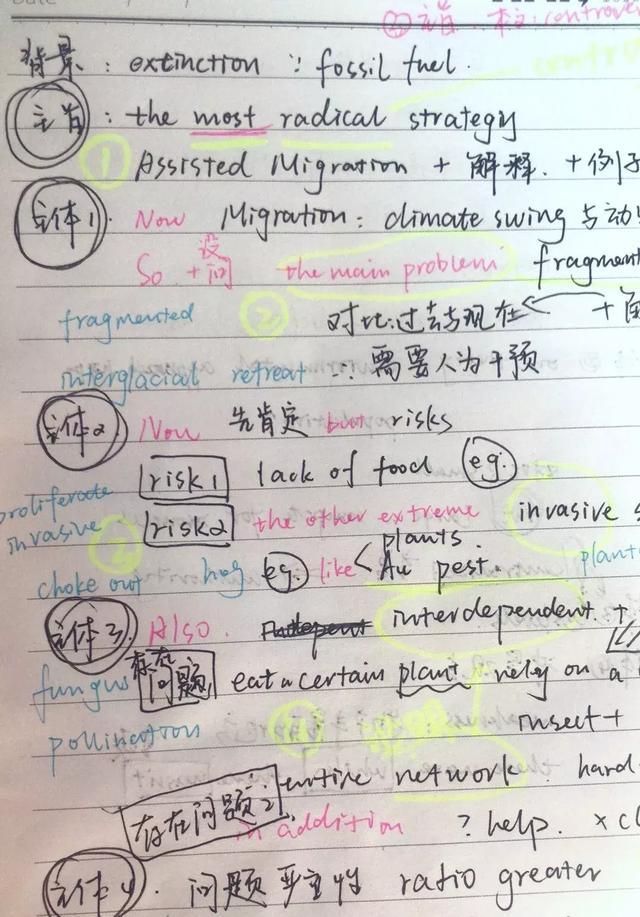 主旨. 
背景: extinction ∵ fossil fuel.
主旨: the most radical strategy
① Assisted Migration + 解释. + 例子
主体1. Now Migration: climate swing 与动
So + 设问 the main problem fragment
fragmented ② 对比:过去与现在 ← +
interglacial retreat ∴ 需要人为干预
主体2. Now 先肯定 but risks
risk1 lack of food eg.
proliferate
invasive risk2 the other extreme invasive s
② plants
choke out hog eg. like < Au pest. plant
主体3. Also. interdependent. +
fungus 存在问题 eat a certain plant rely on a
pollination insect +
entire network. hard
存在问题2 in addition ? help. × cl
主体4. 问题严重性 ratio greater